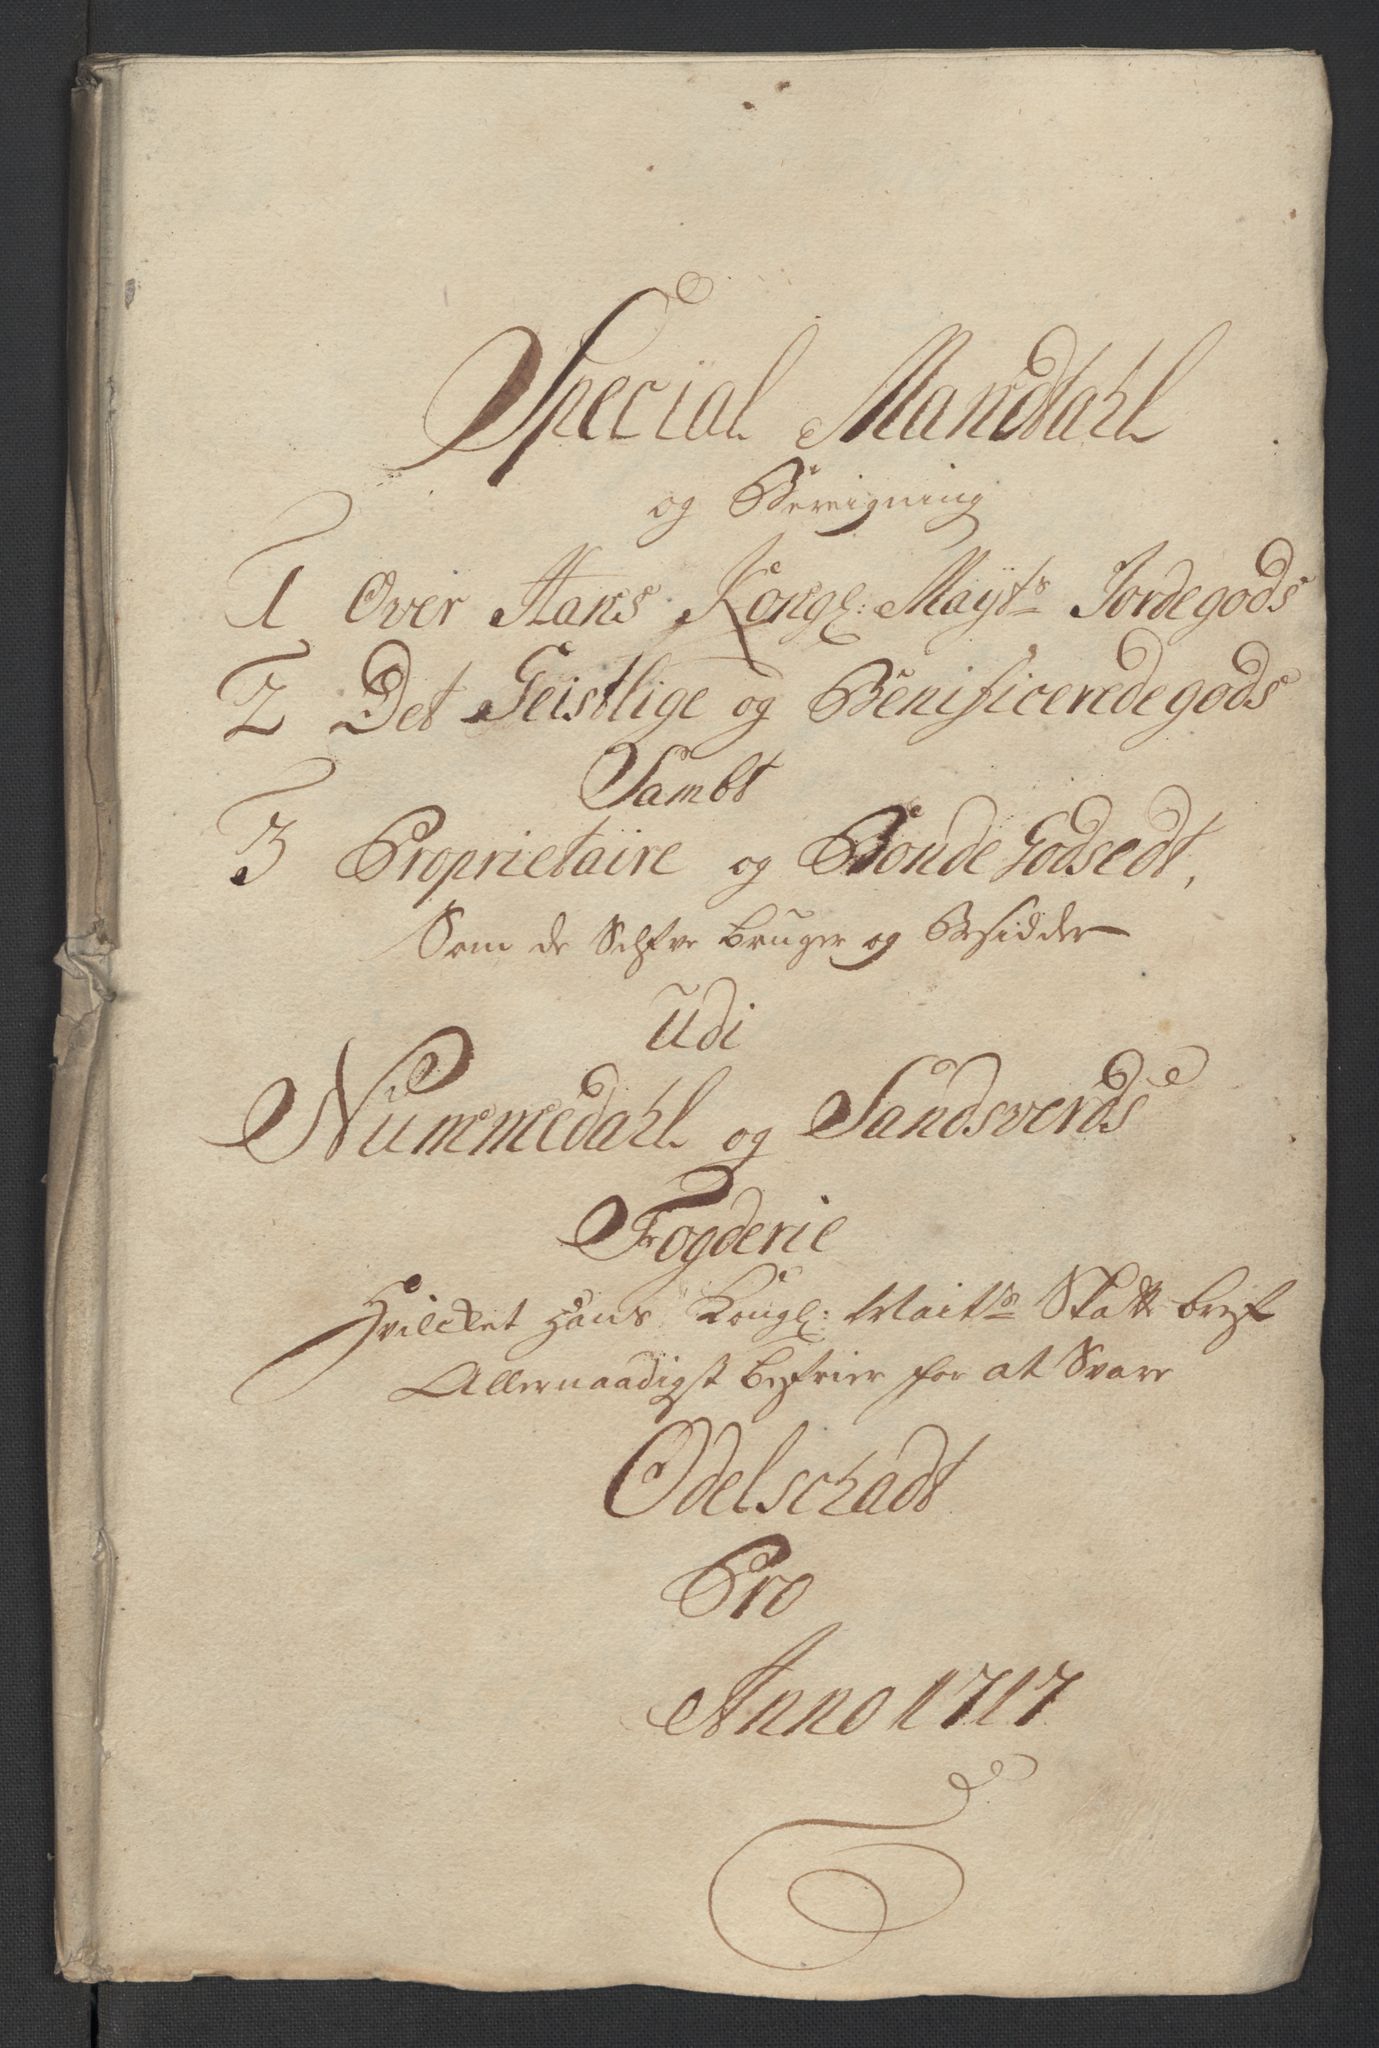 Special Mandtahl
og Bereigning
1 Over Hans Kongl: Mayts Jordegods
2 Det Geistlige og Benificeredegods
Sambt
3 Proprietaire og Bonde Godsedt,
Som de Selfve bruger og Besidder
udi
Nummedahl og Sandsverds
Fogderie
Hvilcket Hans Kongl: Maits Skatte bref
Allernaadigst befrier for at Svare
Odelschadt
Pro
Anno 1717